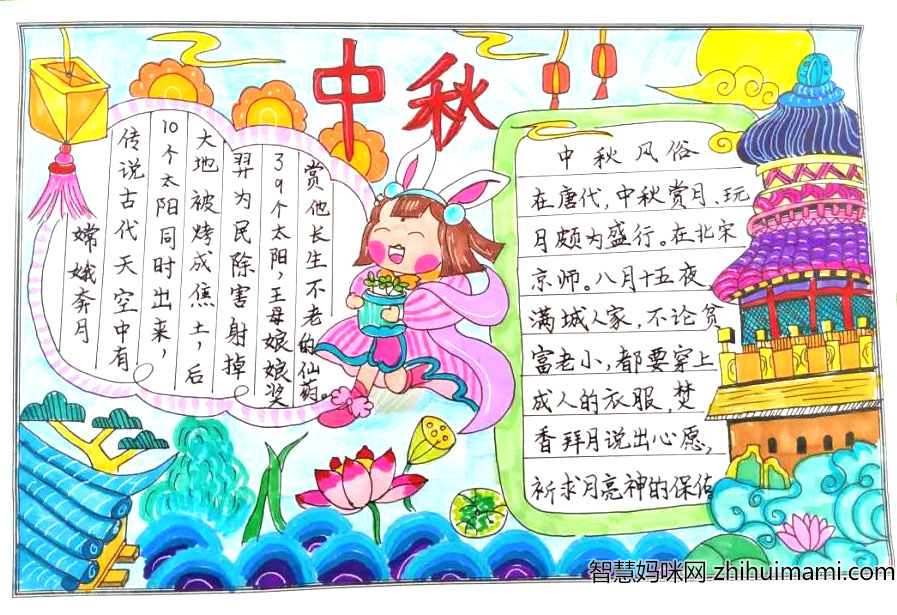 中秋
嫦娥奔月
传说古代天空中有
10个太阳同时出来，
大地被烤成焦土，后
羿为民除害射掉
了9个太阳，王母娘娘奖
赏他长生不老的仙药。
中秋风俗
在唐代，中秋赏月、玩
月颇为盛行。在北宋
京师。八月十五夜
满城人家，不论贫
富老小，都要穿上
成人的衣服，焚
香拜月说出心愿，
祈求月亮神的保佑
智慧妈咪网 zhihuimami.com